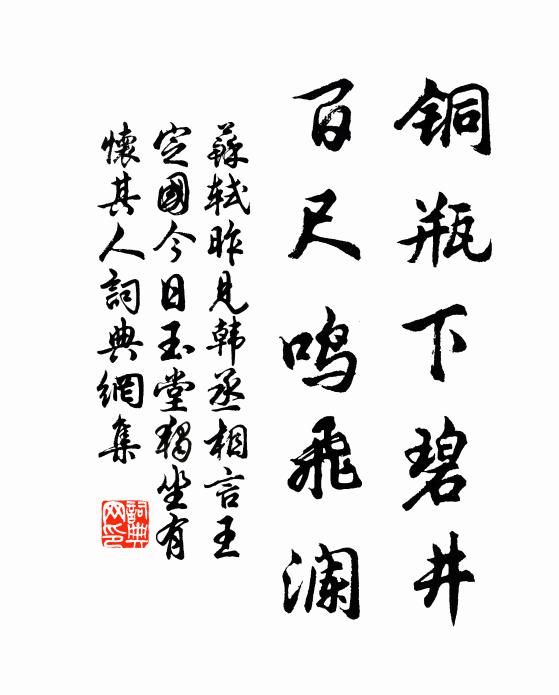 铜瓶下碧井
百尺鸣飛澜
蘇轼昨見韩丞相言王
定國今日玉堂獨坐有
懷其人詞典網集
詞典网印